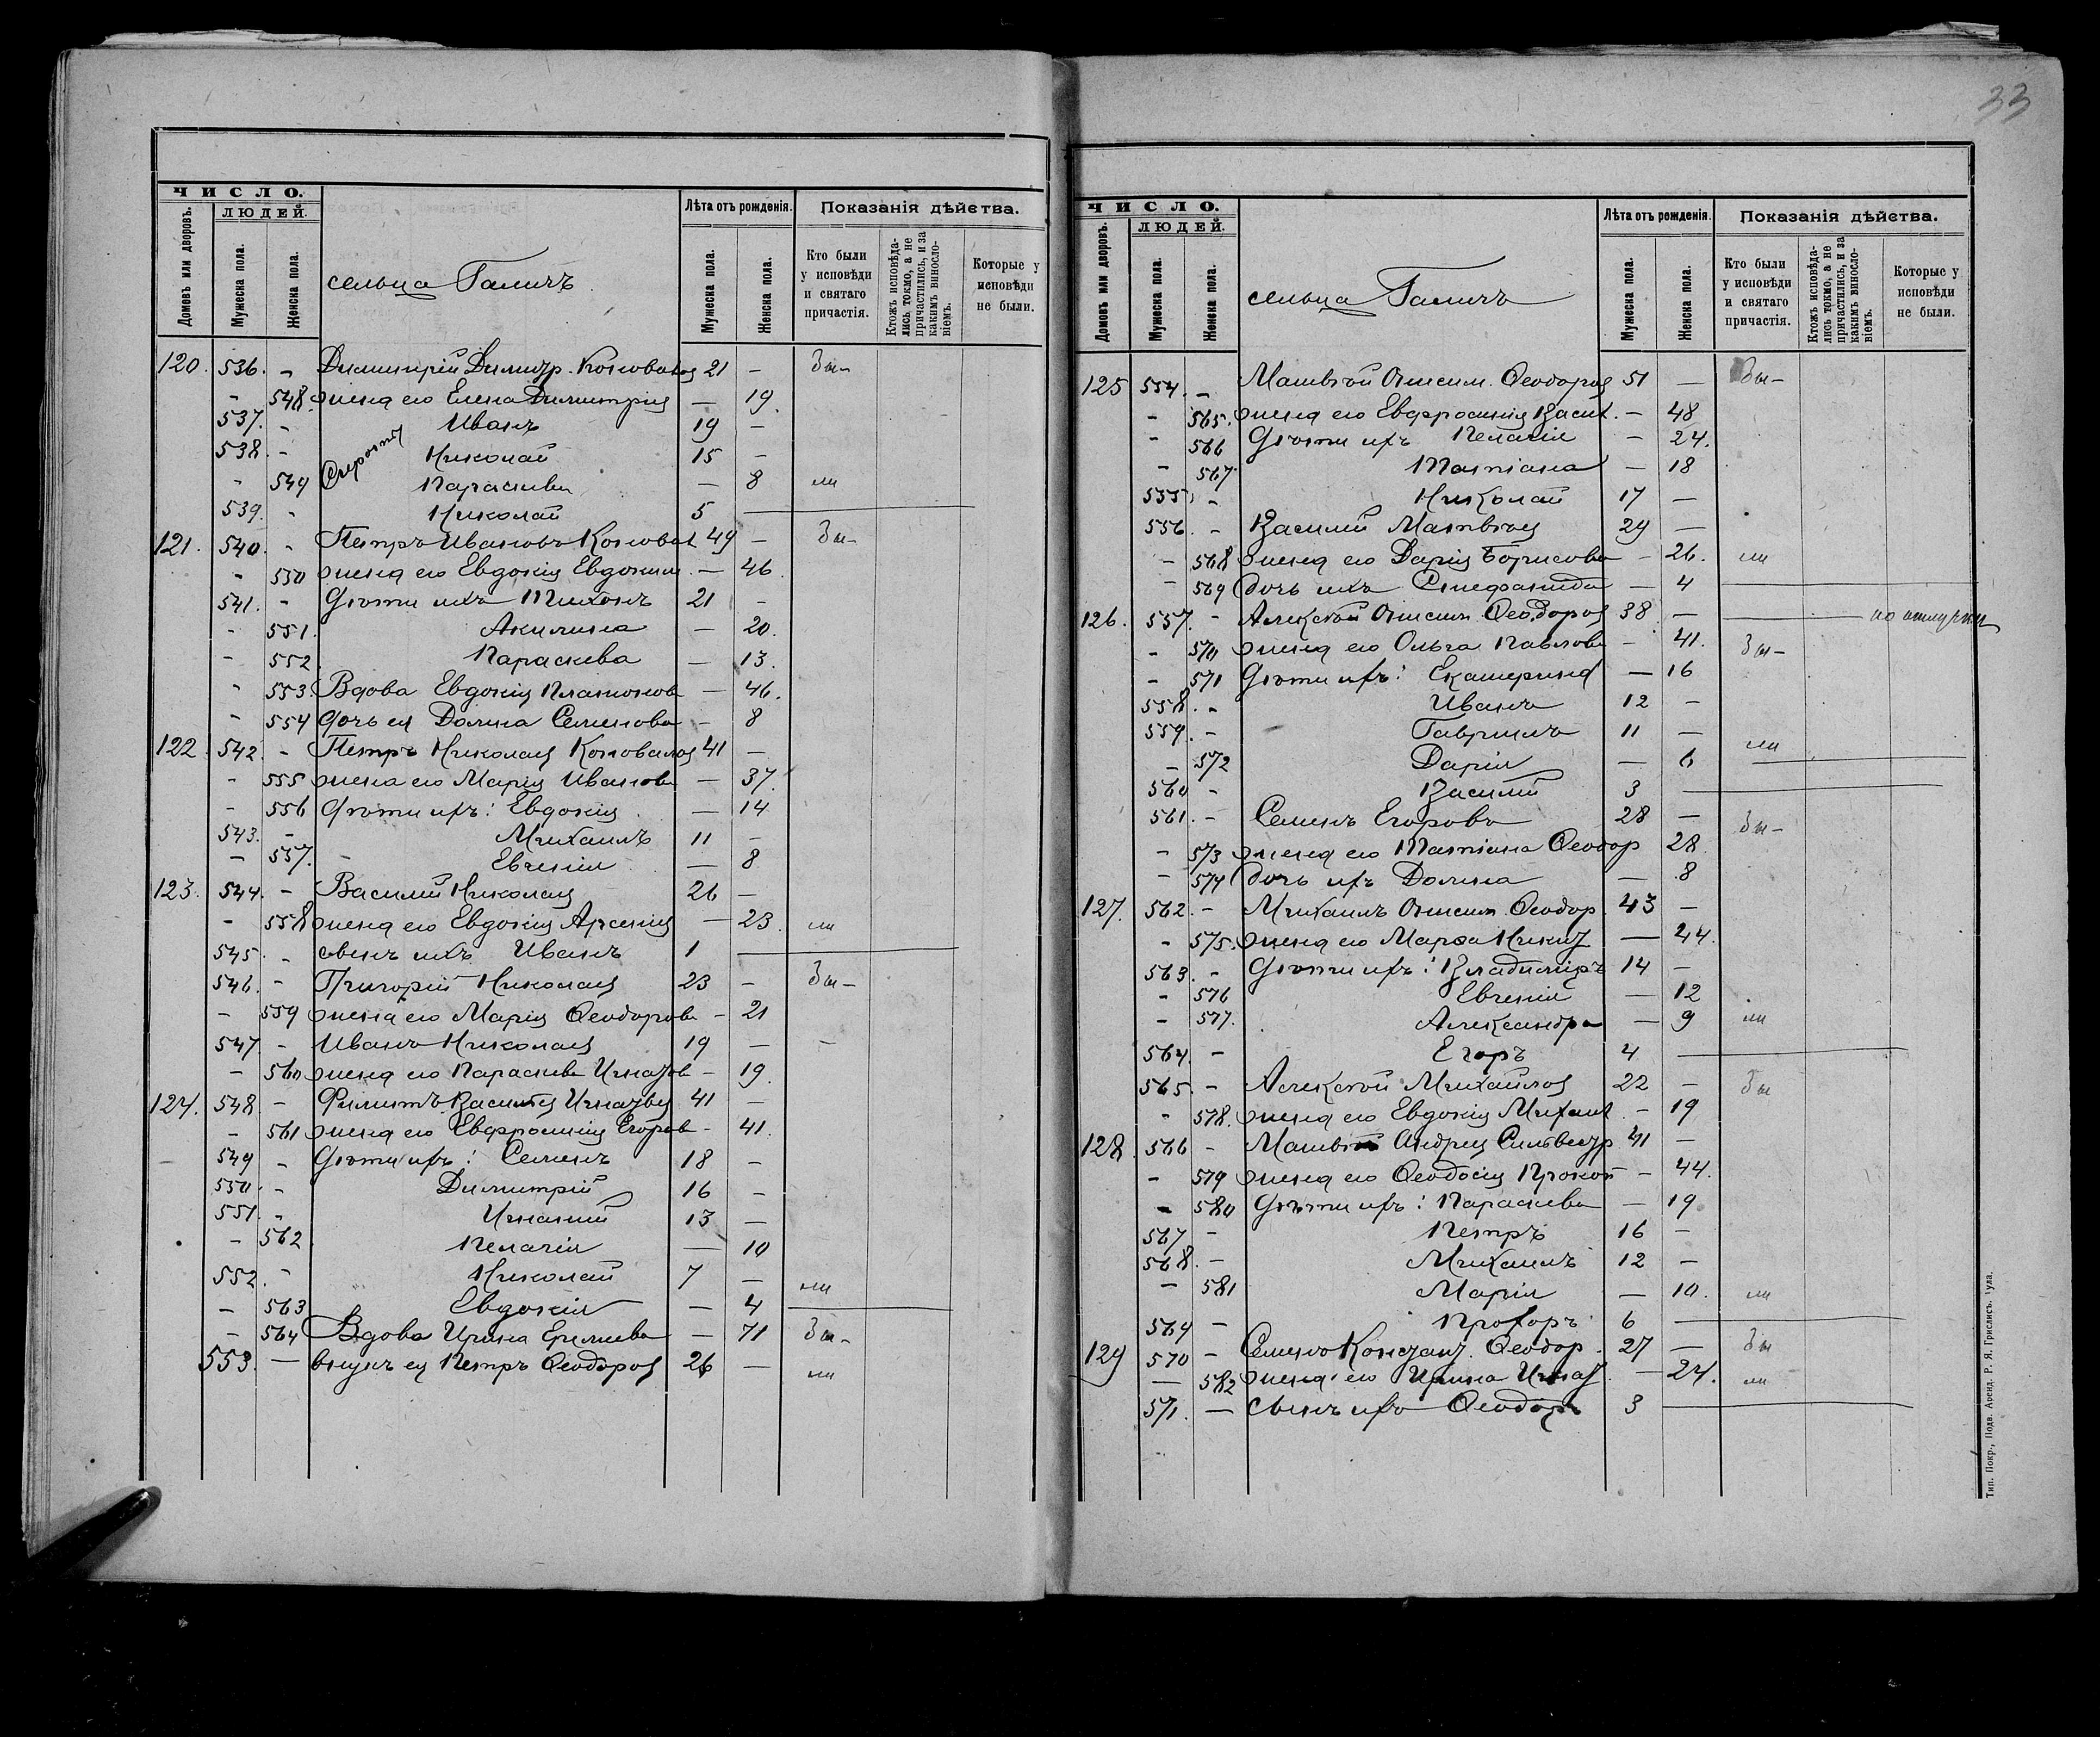 ЧИСЛО.
ЛЮДЕЙ.
Домовъ или дворовъ.
Мужеска пола.
Женска пола.
сельца Галичъ.
Лѣта отъ рожденія.
Мужеска пола.
Женска пола.
Показанія дѣйства.
Кто были у исповѣди и святаго причастія.
Ктожъ исповѣда-лись токмо, а не причастились, и за какимъ винословіемъ.
Которые у исповѣди не были.
120. 536. - Димитрій Димитр. Коновалов 21 - бы-
- 548. жена его Елена Димитрія — 19.
537. - Сироты Иванъ 19 -
538. - Николай 15 -
- 549 Параскева — 8 ли
539. - Николай 5
121. 540. - Петръ Ивановъ Коновал 49 - бы-
- 550 жена его Евдокія Евдоким. — 46.
541. - Дѣти ихъ Тихонъ 21 -
- 551. Акилина — 20.
- 552. Параскева — 13.
- 553. Вдова Евдокія Платонова — 46.
- 554 дочь ея Домна Семенова — 8
122. 542. - Петръ Николаев Коновалов 41 —
- 555 жена его Марія Иванова — 37.
- 556 Дѣти ихъ: Евдокія — 14
543. - Михаилъ 11 -
- 557. Евгенія — 8
123. 544. - Василій Николаев 26 —
- 558 жена его Евдокія Арсенія — 23. ли
545. - сынъ ихъ Иванъ 1
546. - Григорій Николаев 23 - бы-
- 559 жена его Марія Ѳеодорова - 21
547. - Иванъ Николаев 19 —
- 560 жена его Параскева Игнатов - 19.
124. 548. - Филиппъ Васильев Игнатьев 41 —
- 561 жена его Евфросинія Егоров - 41.
549 - Дѣти ихъ: Семенъ 18 -
550. - Димитрій 16 -
551. - Игнатій 13 —
- 562 Пелагія — 10
552. - Николай 7 — ли
- 563 Евдокія — 4
- 564 Вдова Ирина Еремеева — 71 бы-
553. — внукъ ея Петръ Ѳеодоров 26 — ли
33
ЧИСЛО.
ЛЮДЕЙ.
Домовъ или дворовъ.
Мужеска пола.
Женска пола.
сельца Галичъ
Лѣта отъ рожденія.
Мужеска пола.
Женска пола.
Показанія дѣйства.
Кто были у исповѣди и святаго причастія.
Ктожъ исповѣда-лись токмо, а не причастились, и за какимъ винословіемъ.
Которые у исповѣди не были.
125 554. - Матвѣй Онисим. Ѳеодоров 51 — бы-
- 565. жена его Евфросинія Васил. - 48
- 566 Дѣти ихъ Пелагія - 24.
- 567 Татіана — 18
555. - Николай 17 —
556. - Василій Матвѣев 29 —
- 568 жена его Дарія Борисова - 26. ли
- 569 дочь ихъ Стефанида — 4
126. 557. - Алексѣй Онисим. Ѳеодоров 38. — по отлучки
- 570 жена его Ольга Павлова - 41. бы-
- 571 Дѣти ихъ: Екатерина — 16
558. - Иванъ 12 -
559. - Гавріилъ 11 —
- 572 Дарія — 6 ли
560 - Василій 3
561. - Семенъ Егоровъ 28 — бы-
- 573 жена его Татіана Ѳеодор 28
- 574 дочь ихъ Домна — 8
127. 562. - Михаилъ Онисим. Ѳеодор. 43 -
- 575. жена его Марѳа Никит — 44.
563. - Дѣти ихъ: Владиміръ 14 -
- 576 Евгенія — 12
- 577. Александра — 9 ли
564. - Егоръ 4
565. - Алексѣй Михайлов 22 - бы
- 578. жена его Евдокія Михаил. - 19
128. 566 - Матвѣй Андреев Сильвестр 41 -
- 579 жена его Ѳеодосія Прокоп - 44.
- 580 Дѣти ихъ: Параскева — 19
567 - Петръ 16 -
568. - Михаилъ 12 -
- 581 Марія — 10. ли
569 - Прохоръ 6
129 570 - Семенъ Констант. Ѳеодор. 27 — бы
— 582 жена его Ирина Игнат. — 24. ли
571. — сынъ ихъ Ѳеодоръ 3
Тип. Покр., Подв. Аренд. Р. Я. Грислисъ. Тула.